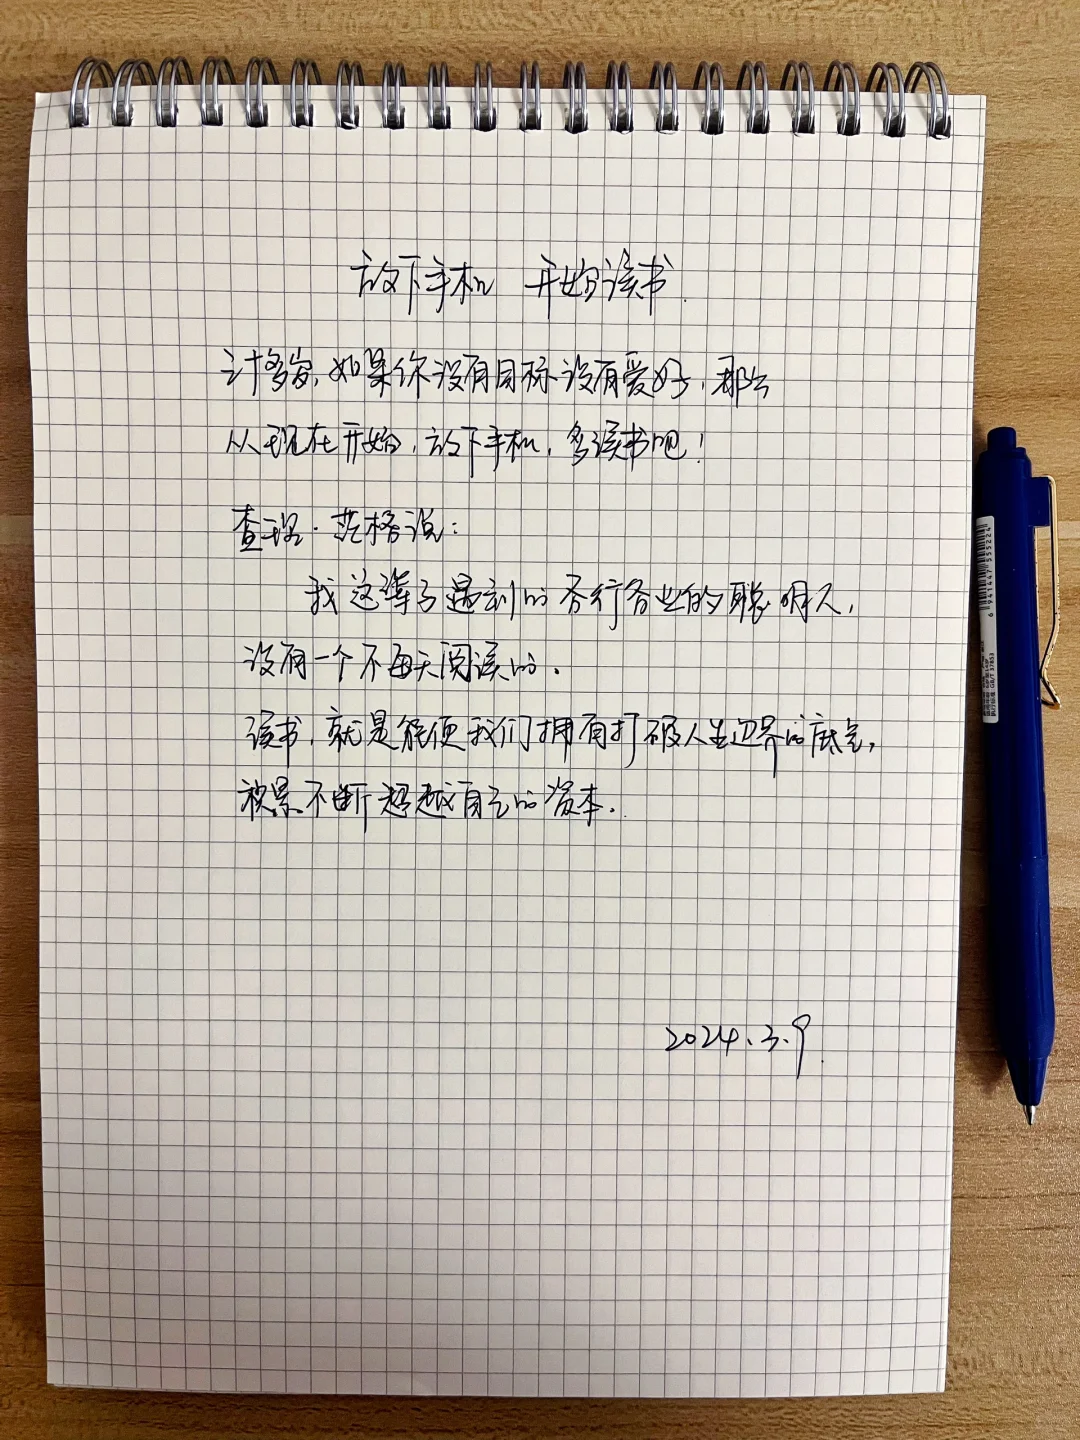 放下手机 开始读书
二十多岁，如果你没有目标没有爱好，那么
从现在开始，放下手机，多读书吧！
查理·芒格说：
我这辈子遇到的各行各业的聪明人，
没有一个不每天阅读的。
读书，就是能使我们拥有打破人生边界的底气，
积累不断超越自己的资本。
2024.3.9
6 941447 555224